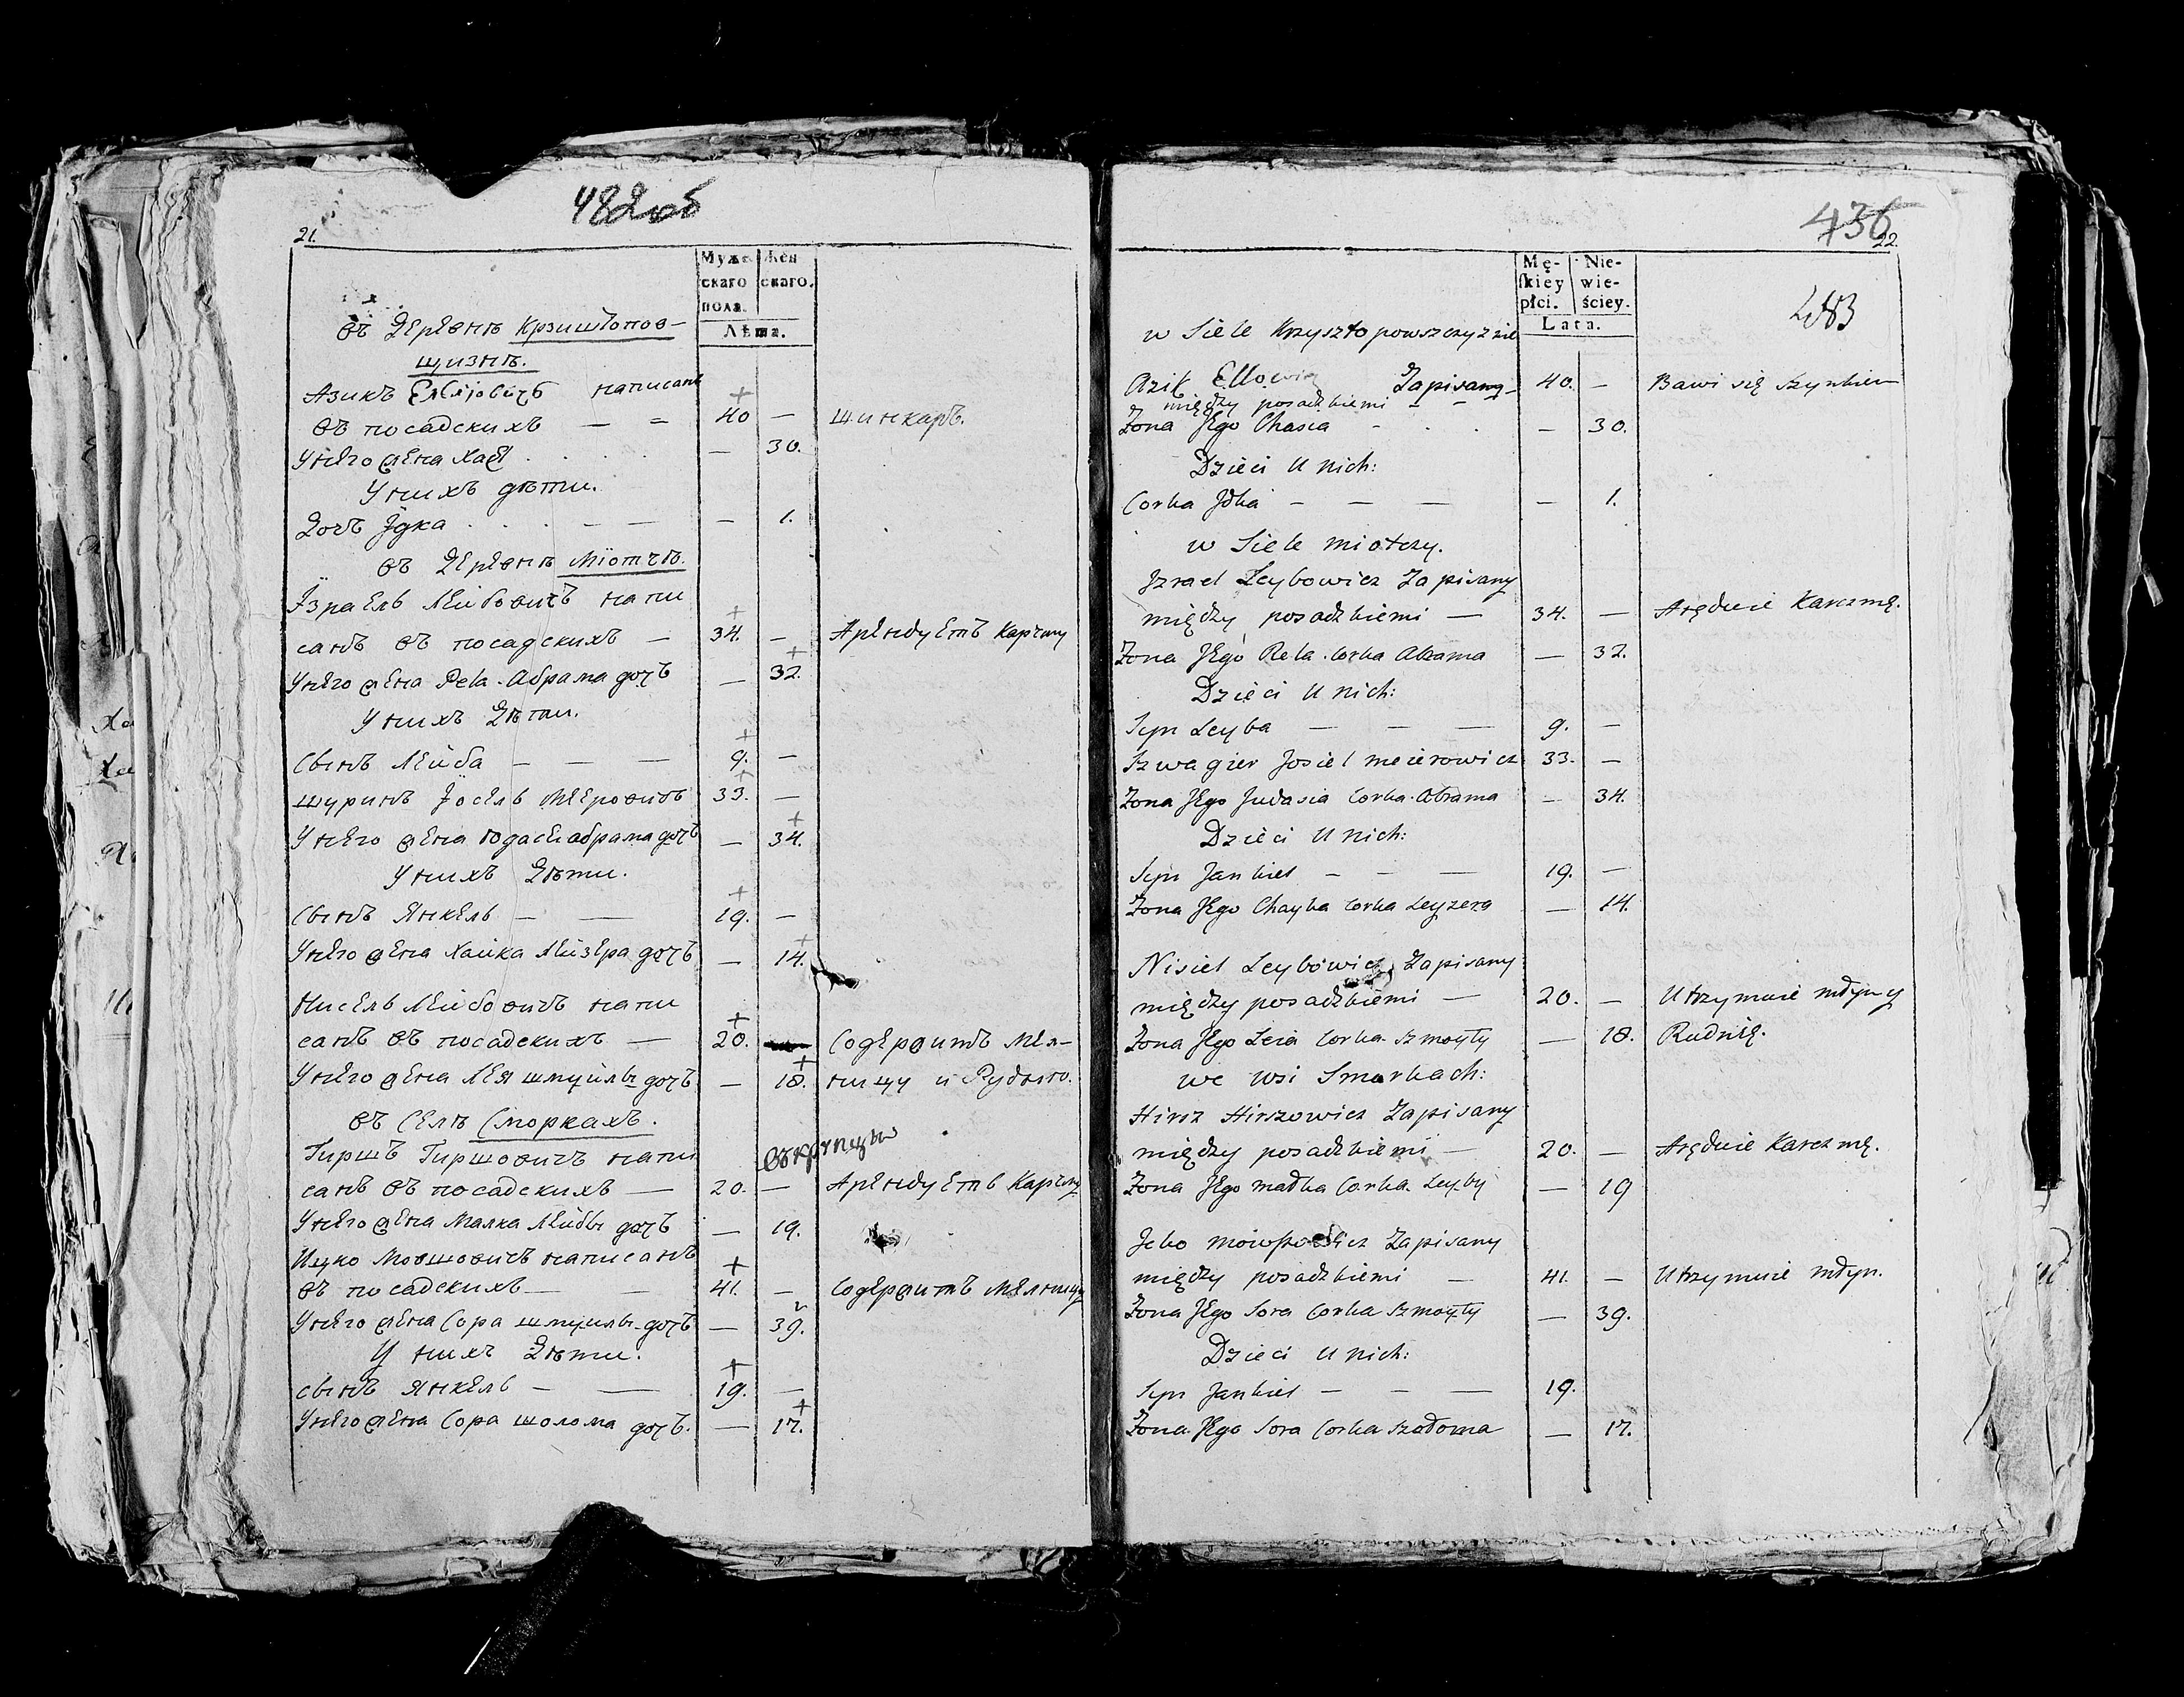 482 об
21.
Муже- Жен
скаго скаго.
пола.
Лѣта.
въ Деревнѣ Крзиштопов-
щизнѣ.
Азикъ написанъ
въ посадскихъ — = 40 — шинкаръ.
У него жена Хася . . . — 30.
У нихъ дѣти.
Дочь Їдка . . . — — — 1.
въ Деревнѣ Мїотчѣ.
Їзраель Лейбовичъ напи
санъ въ посадскихъ — 34. — Арендуетъ Карчму
У него жена Рела Абрама дочь — 32.
У нихъ Дѣти.
Сынъ Лейба — — — 9. —
шуринъ Їосель Мееровичъ 33. —
У него жена Юдася абрама дочь — 34.
У нихъ Дѣти.
Сынъ Янкель — — 19. —
У него жена Хайка Лейзера дочь — 14.
Нисель Лейбовичъ напи
санъ въ посадскихъ — 20. — Содержитъ Мел-
У него жена Лея шмуйлы дочь — 18. ницу и Рудню.
въ Селѣ Сморкахъ.
Гиршъ Гиршовичъ напи
санъ въ посадскихъ — 20. — Арендуетъ Карчму
У него жена Малка Лейбы дочь — 19.
Ицко Мовшовичъ написанъ
въ посадскихъ — — 41. — Содержитъ Мелницу
У него жена Сора шмуилы дочь — 39.
У нихъ Дѣти.
сынъ Янкель — — 19. —
У него жена Сора шолома дочь. — 17.
436
22.
483
Mę- Nie-
skiey wie-
płci. ściey.
Lata.
w Siele Krzysztopowszczyznie
Azik Ellowicz Zapisany — 40. — Bawi się szynkiem
między posadzkiemi - -
Żona Jego Chasia - . . — 30.
Dzieci U nich:
Corka Jdka — — — — 1.
w Siele Miotczy.
Jzrael Leybowicz Zapisany
między posadzkiemi — 34. — Aręduie Karczmę.
Żona Jego Rela Corka Abrama — 32.
Dzieci U nich:
Syn Leyba — — — 9. —
Szwagier Josiel Meierowicz 33. —
Żona Jego Judasia Corka Abrama — 34.
Dzieci U nich:
Syn Jankiel — — — 19. —
Żona Jego Chayka Corka Leyzera — 14.
Nisiel Leybowicz Zapisany
między posadzkiemi — 20. — Utrzymuie młyn y
Żona Jego Leia Corka Szmoyły — 18. Rudnię.
we wsi Smorkach:
Hirsz Hirszowicz Zapisany
między posadzkiemi — 20. — Aręduie Karczmę.
Żona Jego Małka Corka Leyby — 19
Jcko Zapisany
między posadzkiemi — 41. — Utrzymuie młyn.
Żona Jego Sora Corka Szmoyły — 39.
Dzieci U nich:
Syn Jankiel — — — 19.
Żona Jego Sora Corka Szołoma — 17.